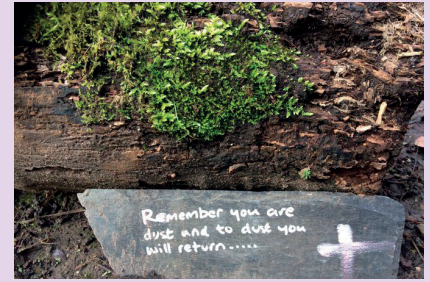 Remember you are
dust and to dust you
will return.....